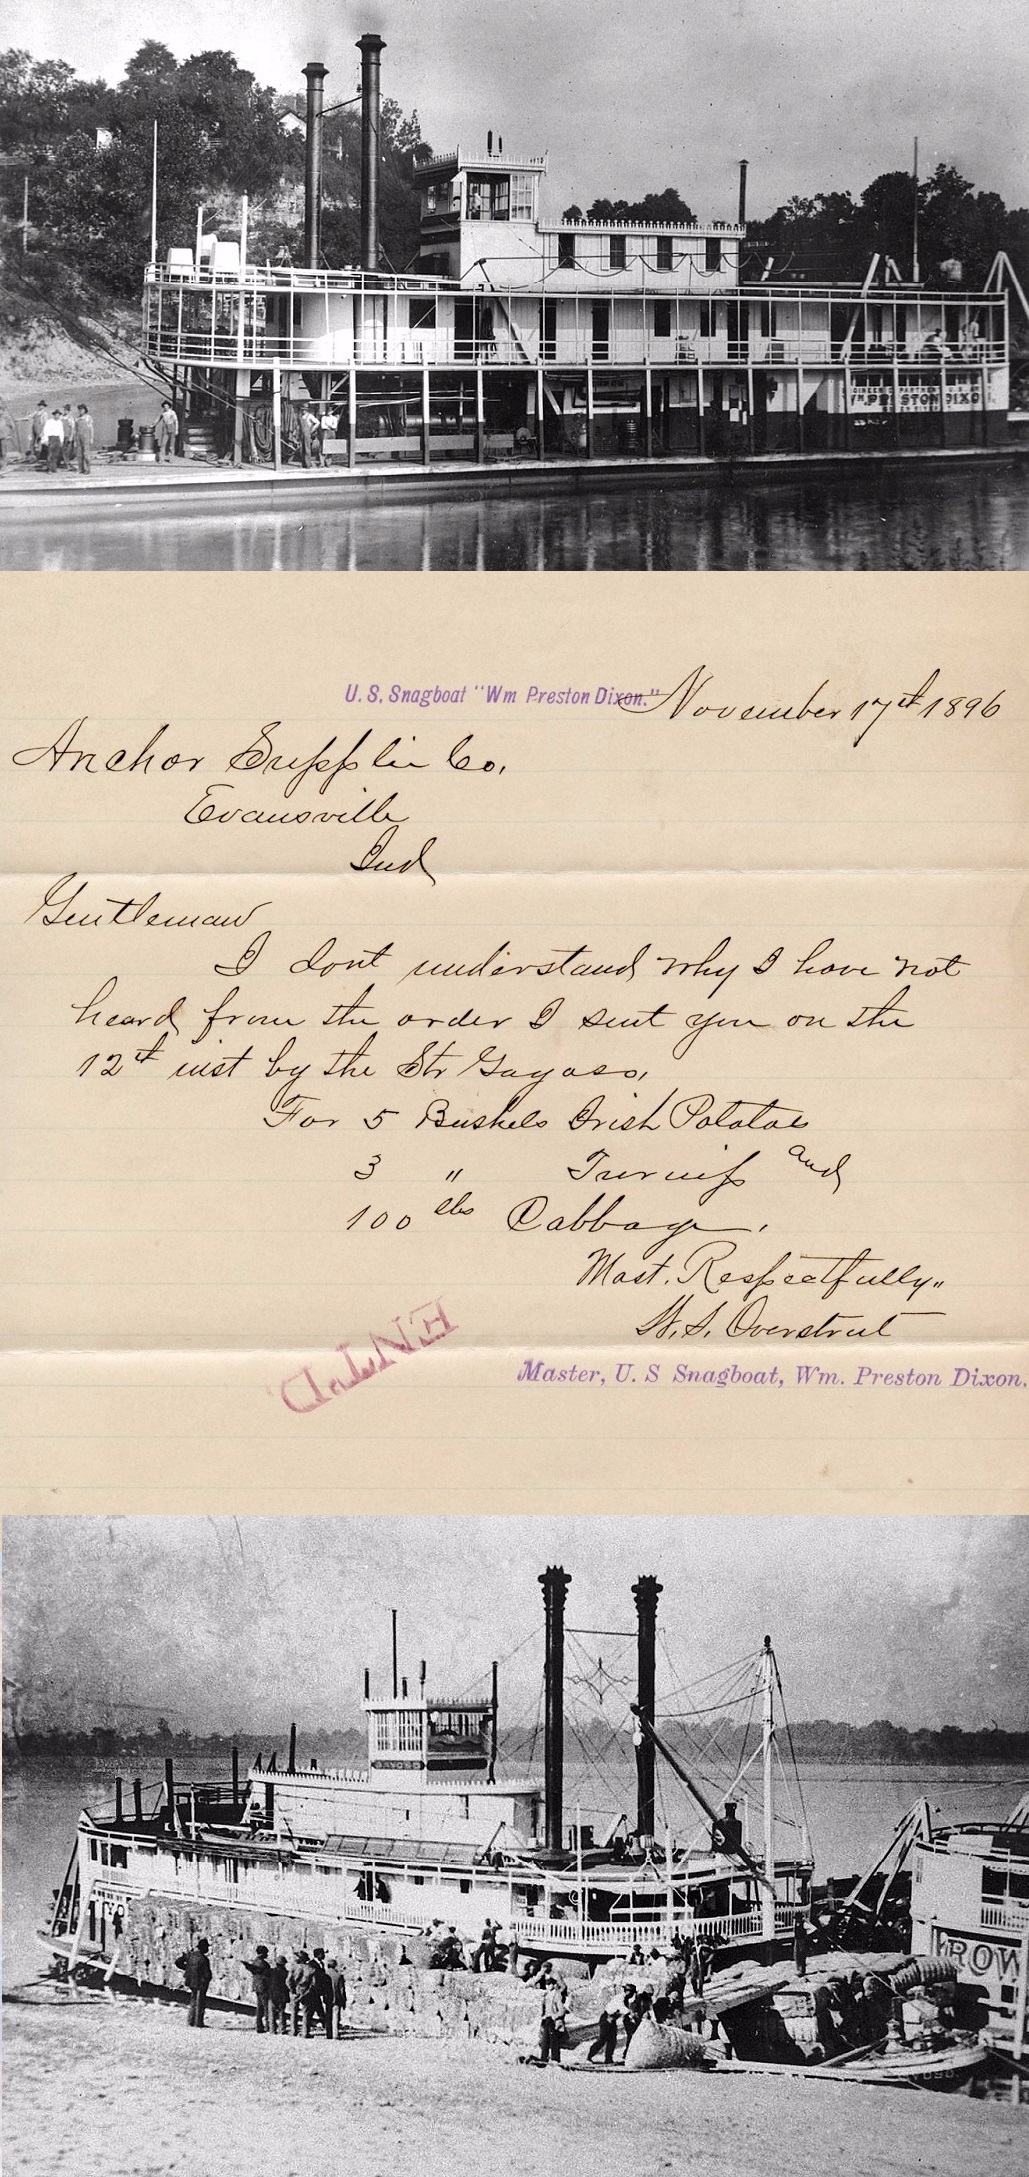 WM. PRESTON DIXON.
U. S. Snagboat "Wm Preston Dixon."
November 17th 1896
Anchor Supplie Co.
Evansville
Ind
Gentleman
I dont understand why I have not
heard from the order I sent you on the
12th inst by the Str Gayoso.
For 5 Bushels Irish Potatoes
3 " Turnips and
100 lbs Cabbage.
Most. Respectfully"
W. S. Overstreet
ENT'D
Master, U. S Snagboat, Wm. Preston Dixon.
ROW